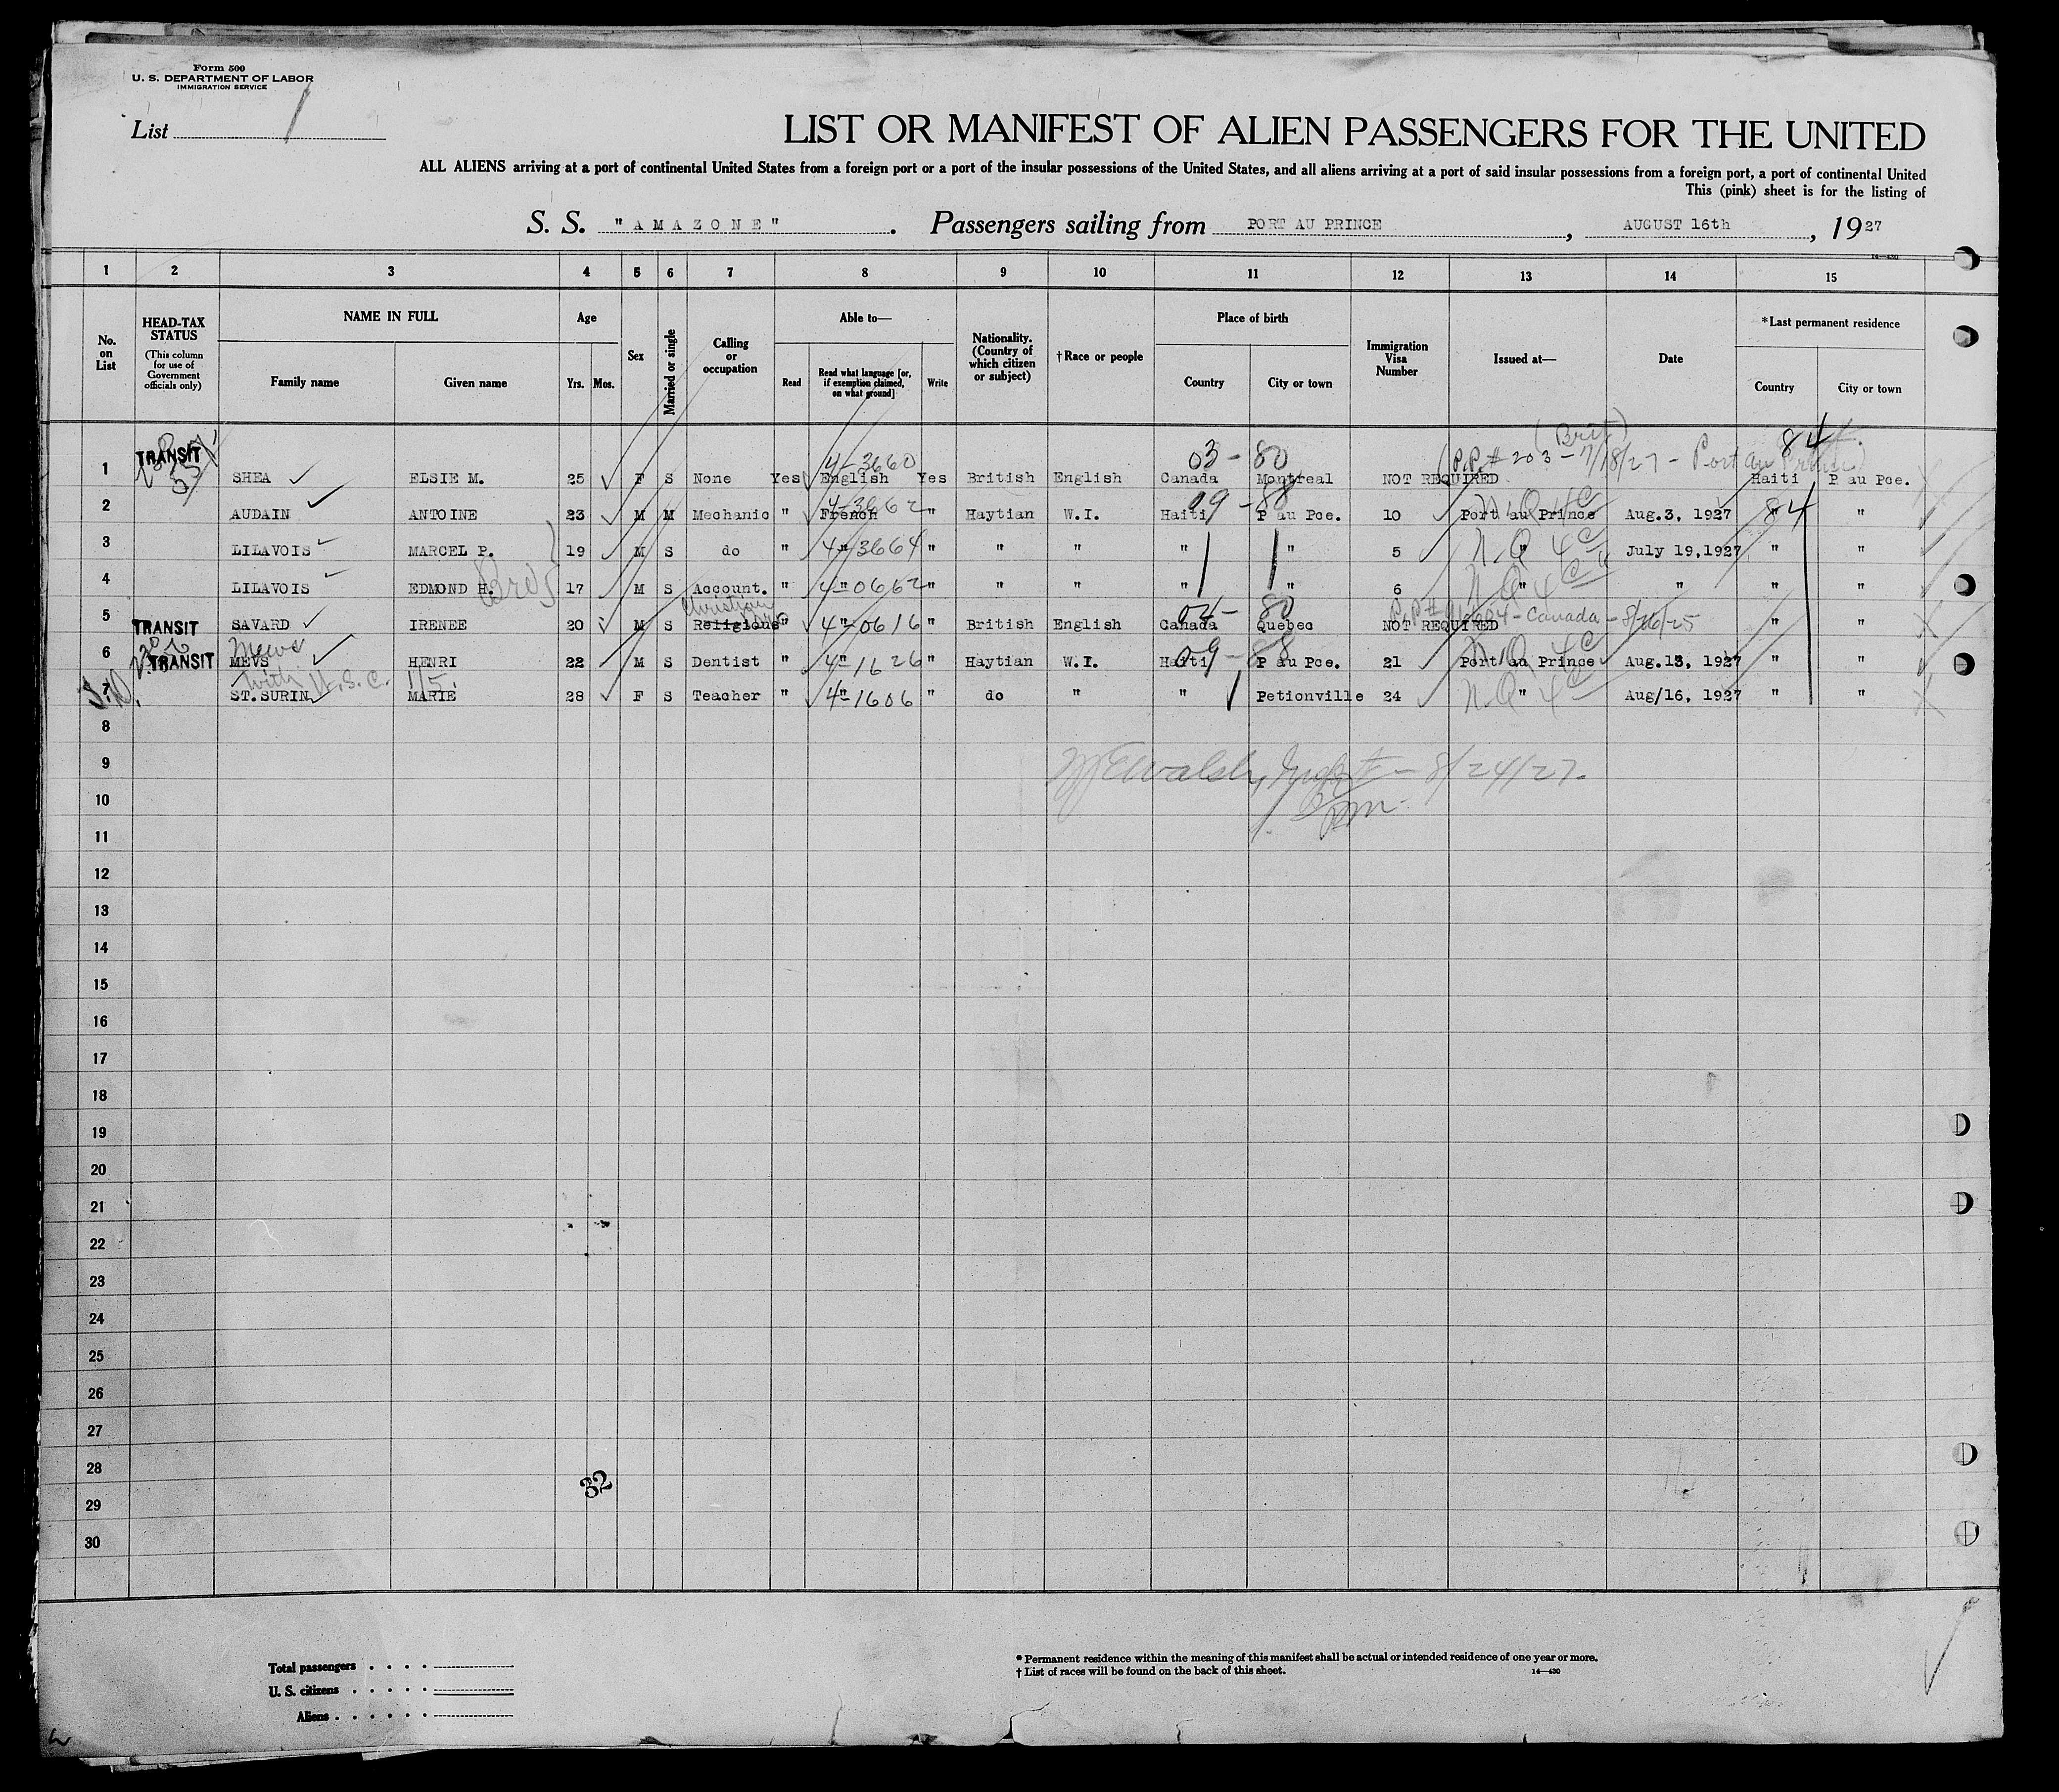 Form 500
U. S. DEPARTMENT OF LABOR
IMMIGRATION SERVICE
List 1
LIST OR MANIFEST OF ALIEN PASSENGERS FOR THE UNITED
ALL ALIENS arriving at a port of continental United States from a foreign port or a port of the insular possessions of the United States, and all aliens arriving at a port of said insular possessions from a foreign port, a port of continental United
This (pink) sheet is for the listing of
S. S. "AMAZONE". Passengers sailing from PORT AU PRINCE, AUGUST 16th, 1927
14—430
1 2 3 4 5 6 7 8 9 10 11 12 13 14 15
No. on List
HEAD-TAX STATUS
(This column for use of Government officials only)
NAME IN FULL
Family name Given name
Age
Yrs. Mos.
Sex
Married or single
Calling or occupation
Able to—
Read
Read what language [or, if exemption claimed, on what ground]
Write
Nationality. (Country of which citizen or subject)
†Race or people
Place of birth
Country City or town
Immigration Visa Number
Issued at—
Date
*Last permanent residence
Country City or town
(Brit)
4-3660 03-80 (P.P.# 203 - 7/18/27 - Port au Prince) 84
1 TRANSIT SHEA ELSIE M. 25 F S None Yes English Yes British English Canada Montreal NOT REQUIRED Haiti P au Pce.
4-3662 09-88 N.Q 4C 84
2 AUDAIN ANTOINE 23 M M Mechanic " French " Haytian W.I. Haiti P au Pce. 10 Port au Prince Aug.3, 1927 " "
3 LILAVOIS MARCEL P. 19 M S do " 4-"3664 " " " " " 5 " N.Q 4C July 19,1927 " "
4 LILAVOIS EDMOND H. Bros 17 M S Account. " 4-"0662 " " " " " 6 " N Q 4C " " "
Christian 04-80 P.P# - Canada - 8/26/25
5 TRANSIT SAVARD IRENEE 20 M S Religious " 4-"0616 " British English Canada Quebec NOT REQUIRED " "
Mews 09-88 N.Q 4C
6 TRANSIT MEVS HENRI 22 M S Dentist " 4-"1626 " Haytian W.I. Haiti P au Pce. 21 Port au Prince Aug.13, 1927 " "
with U.S.C.
7 ST.SURIN MARIE 28 F S Teacher " 4-"1606 " do " " Petionville 24 " N.Q 4C Aug/16, 1927 " "
8
9 Walsh, 8/24/27.
10
11
12
13
14
15
16
17
18
19
20
21
22
23
24
25
26
27
28
32
29
30
Total passengers
U. S. citizens
Aliens
* Permanent residence within the meaning of this manifest shall be actual or intended residence of one year or more.
† List of races will be found on the back of this sheet.
14—430